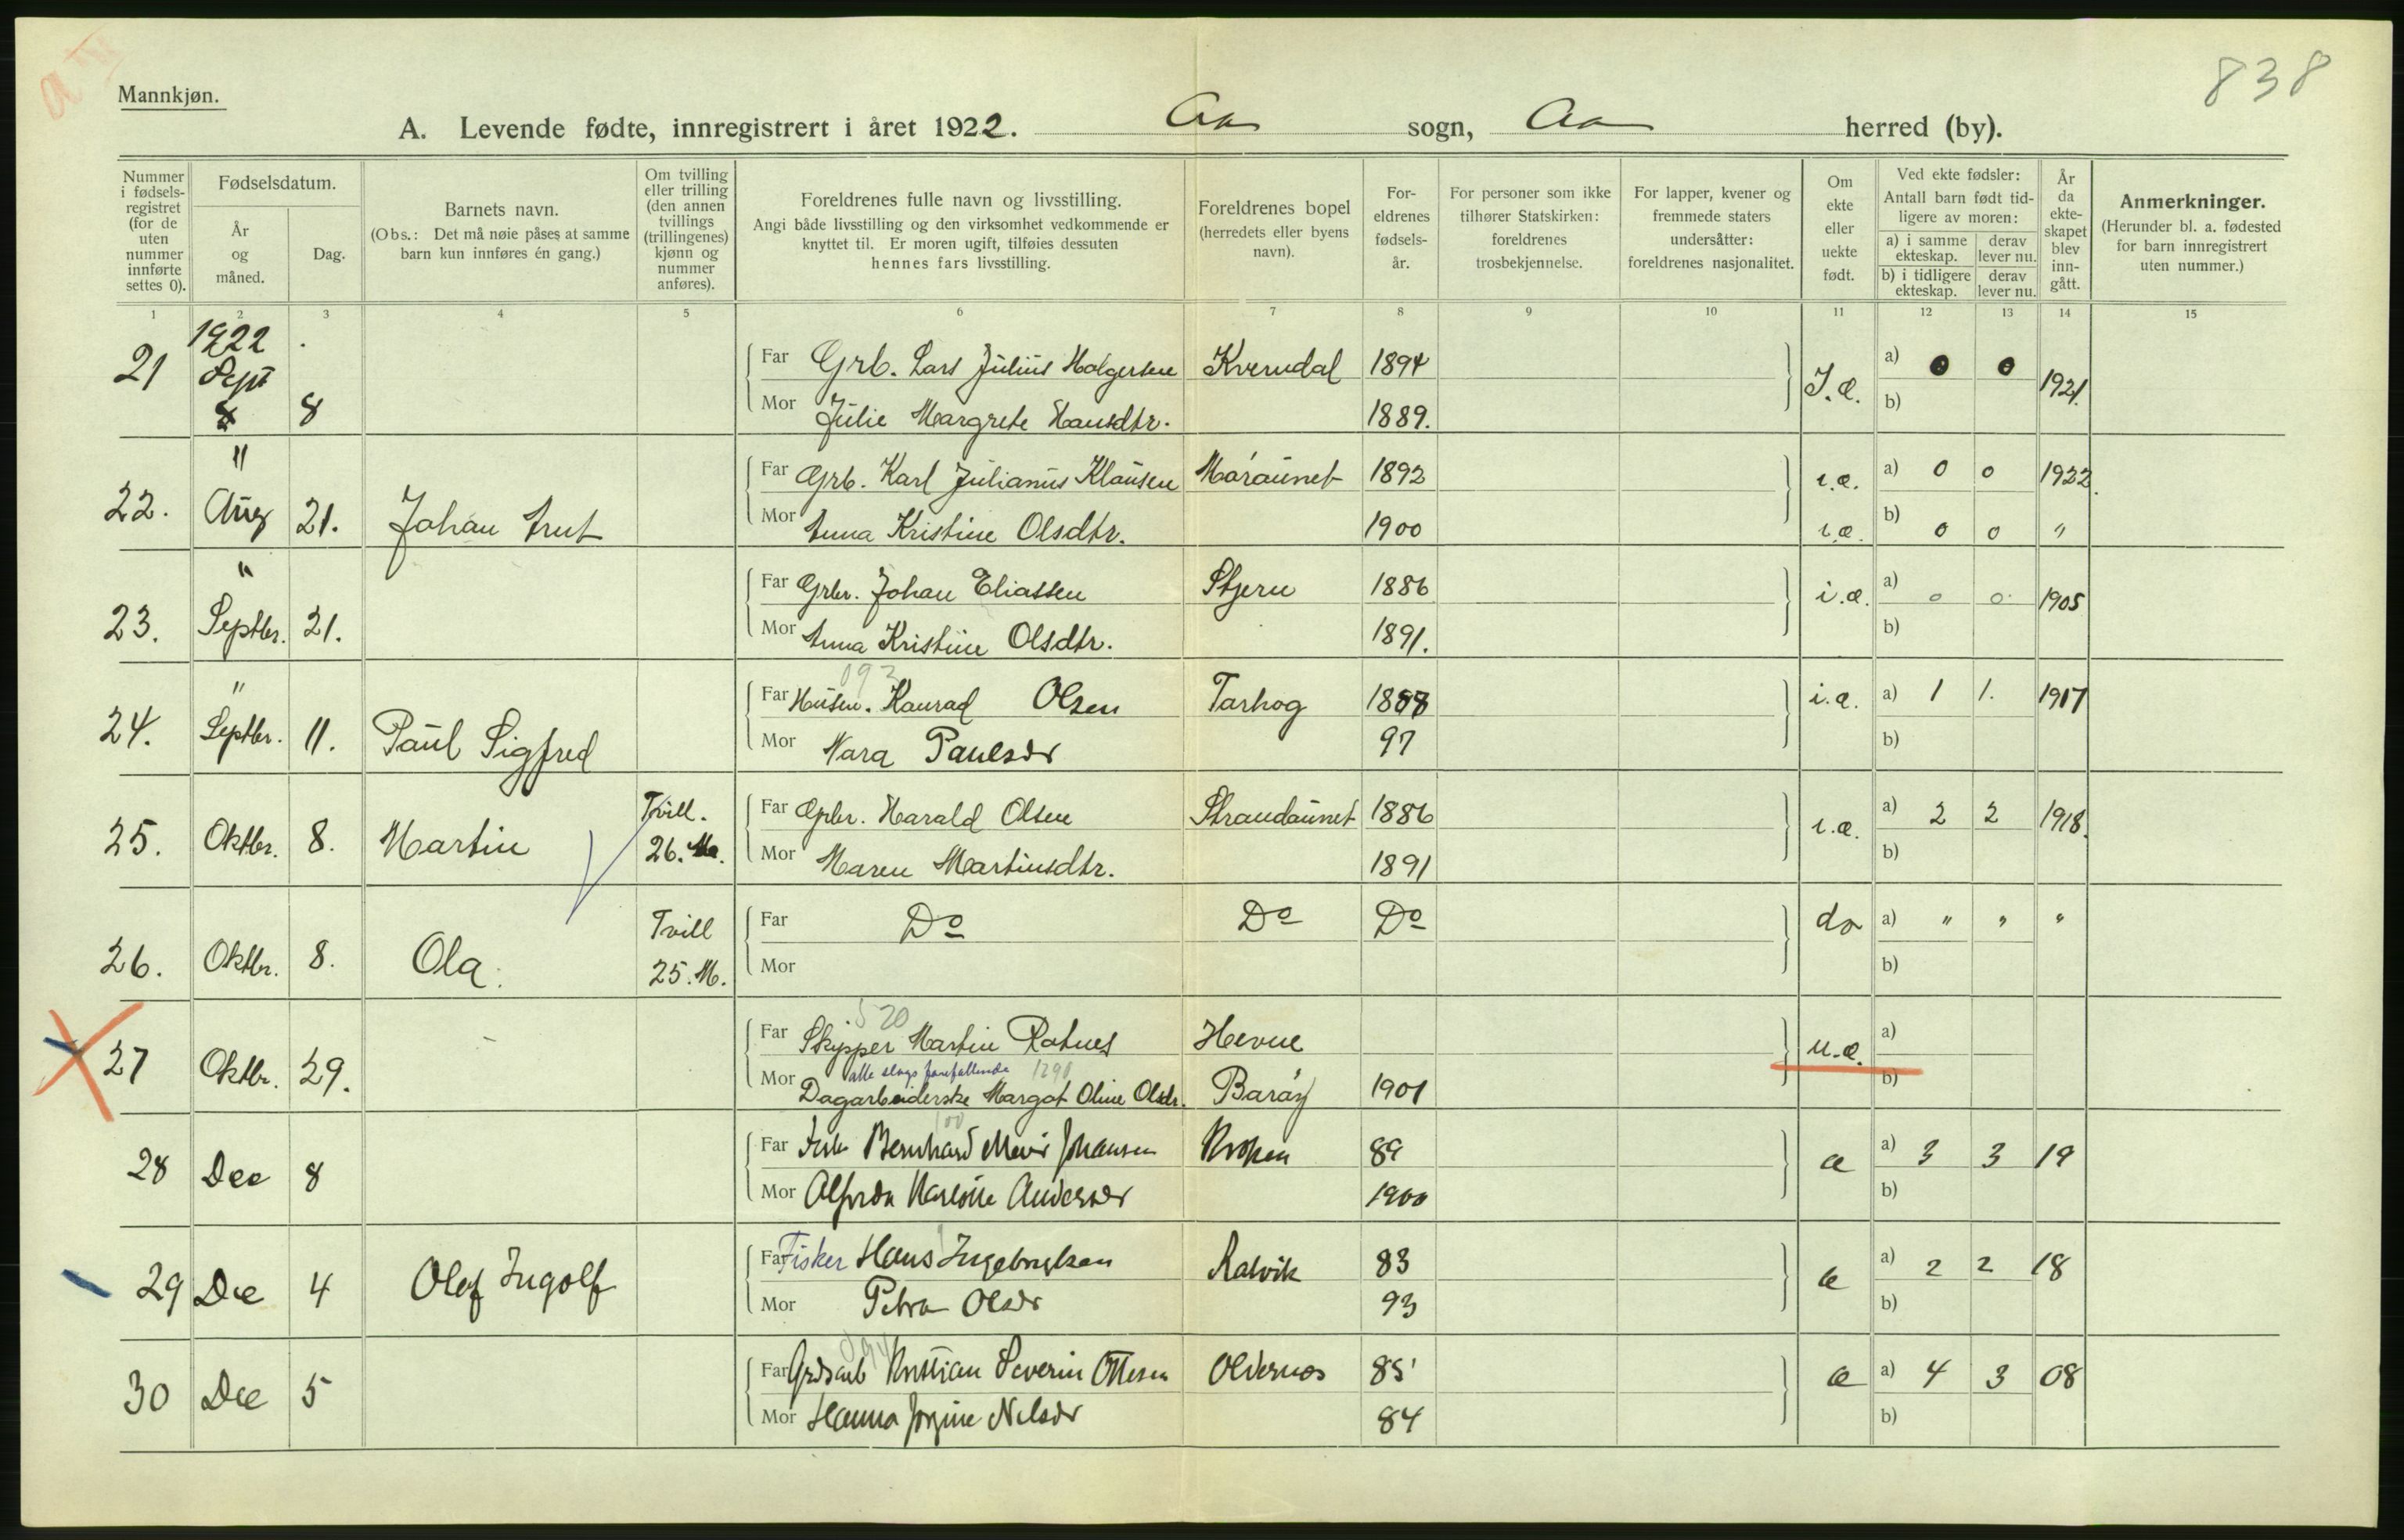 838
Mannkjøn.
A. Levende fødte, innregistrert i året 1922. Aa sogn, Aa herred (by).
Nummer i fødsels-registret (for de uten nummer innførte settes 0).
Fødselsdatum.
År og måned.
Dag.
Barnets navn.
(Obs.: Det må nøie påses at samme barn kun innføres én gang.)
Om tvilling eller trilling (den annen tvillings (trillingenes) kjønn og nummer anføres).
Foreldrenes fulle navn og livsstilling.
Angi både livsstilling og den virksomhet vedkommende er knyttet til. Er moren ugift, tilføies dessuten hennes fars livsstilling.
Foreldrenes bopel (herredets eller byens navn).
For-eldrenes fødsels-år.
For personer som ikke tilhører Statskirken: foreldrenes trosbekjennelse.
For lapper, kvener og fremmede staters undersåtter: foreldrenes nasjonalitet.
Om ekte eller uekte født.
Ved ekte fødsler: Antall barn født tid-ligere av moren:
a) i samme ekteskap. derav lever nu.
b) i tidligere ekteskap. derav lever nu.
År da ekte-skapet blev inn-gått.
Anmerkninger.
(Herunder bl. a. fødested for barn innregistrert uten nummer.)
1 2 3 4 5 6 7 8 9 10 11 12 13 14 15
1922
21 Sept 8 Far Grb. Lars Julius Holgersen Kverndal 1894 I.æ. a) 0 0 1921.
Mor Julie Margrete Hansdtr. 1889. b)
"
22. Aug 21. Johan Arnt Far Grb. Karl Julianus Klausen Måraunet 1892 i.æ. a) 0 0 1922.
Mor Anna Kristine Olsdtr. 1900 i.æ. b) 0 0 "
"
23. Septbr. 21. Far Grbr. Johan Eliassen Stjern 1886 i.æ. a) 0 0 1905
Mor Anna Kristine Olsdtr. 1891. b)
"
093
24. Septbr. 11. Paul Sigfred Far Husm. Konrad Olsen Tarhog 1888 i.æ. a) 1 1. 1917
Mor Mara Paulsdr 97 b)
25. Oktbr. 8. Martin Tvill. 26. M. Far Gbr. Harald Olsen Strandaunet 1886 i.æ. a) 2 2 1918.
Mor Maren Martinsdtr. 1891 b)
26. Oktbr. 8. Ola. Tvill 25. M. Far Do Do Do do a) " " "
Mor b)
520
27 Oktbr. 29. Far Skipper Martin Rotnes Hevne u.æ. a)
alle slags forefallende 1290
Mor Dagarbeiderske Margot Oline Olsdr. Barøy 1901 b)
28 Dec 8 Far Fisk Bernhard Johansen Kroken 89 æ a) 3 3 19
Mor Alfrida Andersdr 1900 b)
29 Dec 4 Olof Ingolf Far Fisker Hans Ingebrigtsen Ratvik 83 æ a) 2 2 18
Mor Petra Olsdr 93 b)
094
30 Dec 5 Far Grdsarb Kristian Severin Ottesen Oldernes 85 æ a) 4 3 08
Mor Hanna Jorgine Nilsdr 84 b)